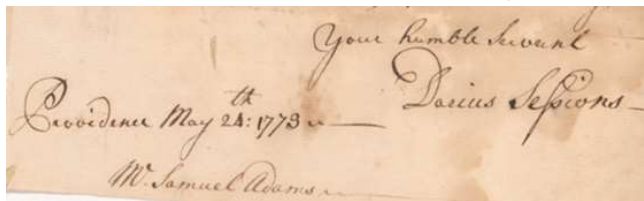 Your humble Servant
Darius Sessions
Providence May 24th: 1773
Mr. Samuel Adams